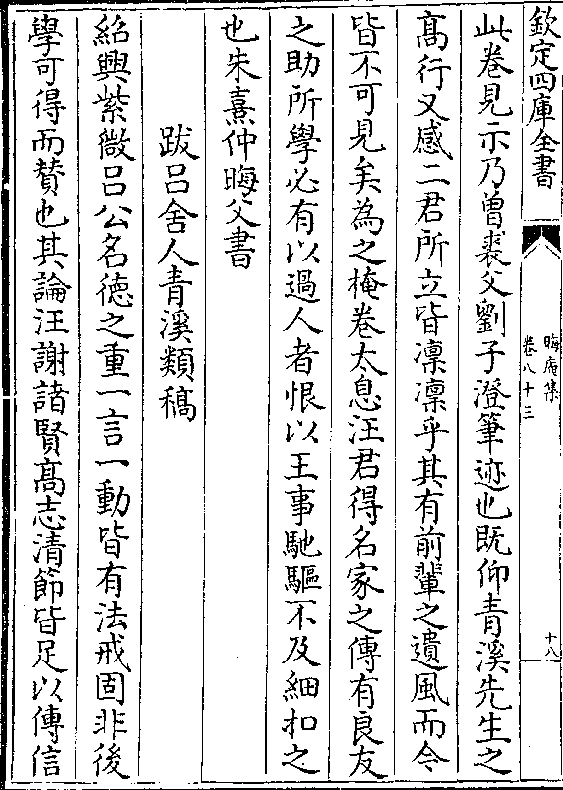 欽定四庫全書
晦庵集
卷八十三
十八
此卷見示乃曾裘父劉子澄筆迹也既仰青溪先生之
髙行又感二君所立皆凛凛乎其有前輩之遺風而今
皆不可見矣為之掩卷太息汪君得名家之傳有良友
之助所學必有以過人者恨以王事馳驅不及細扣之
也朱熹仲晦父書
跋吕舍人青溪類稿
紹興紫微吕公名徳之重一言一動皆有法戒固非後
學可得而賛也其論汪謝諸賢髙志清節皆足以傳信